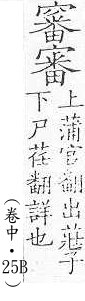 審審
上蒲官翻出莊子
下尸荏翻詳也
(卷中·25B)